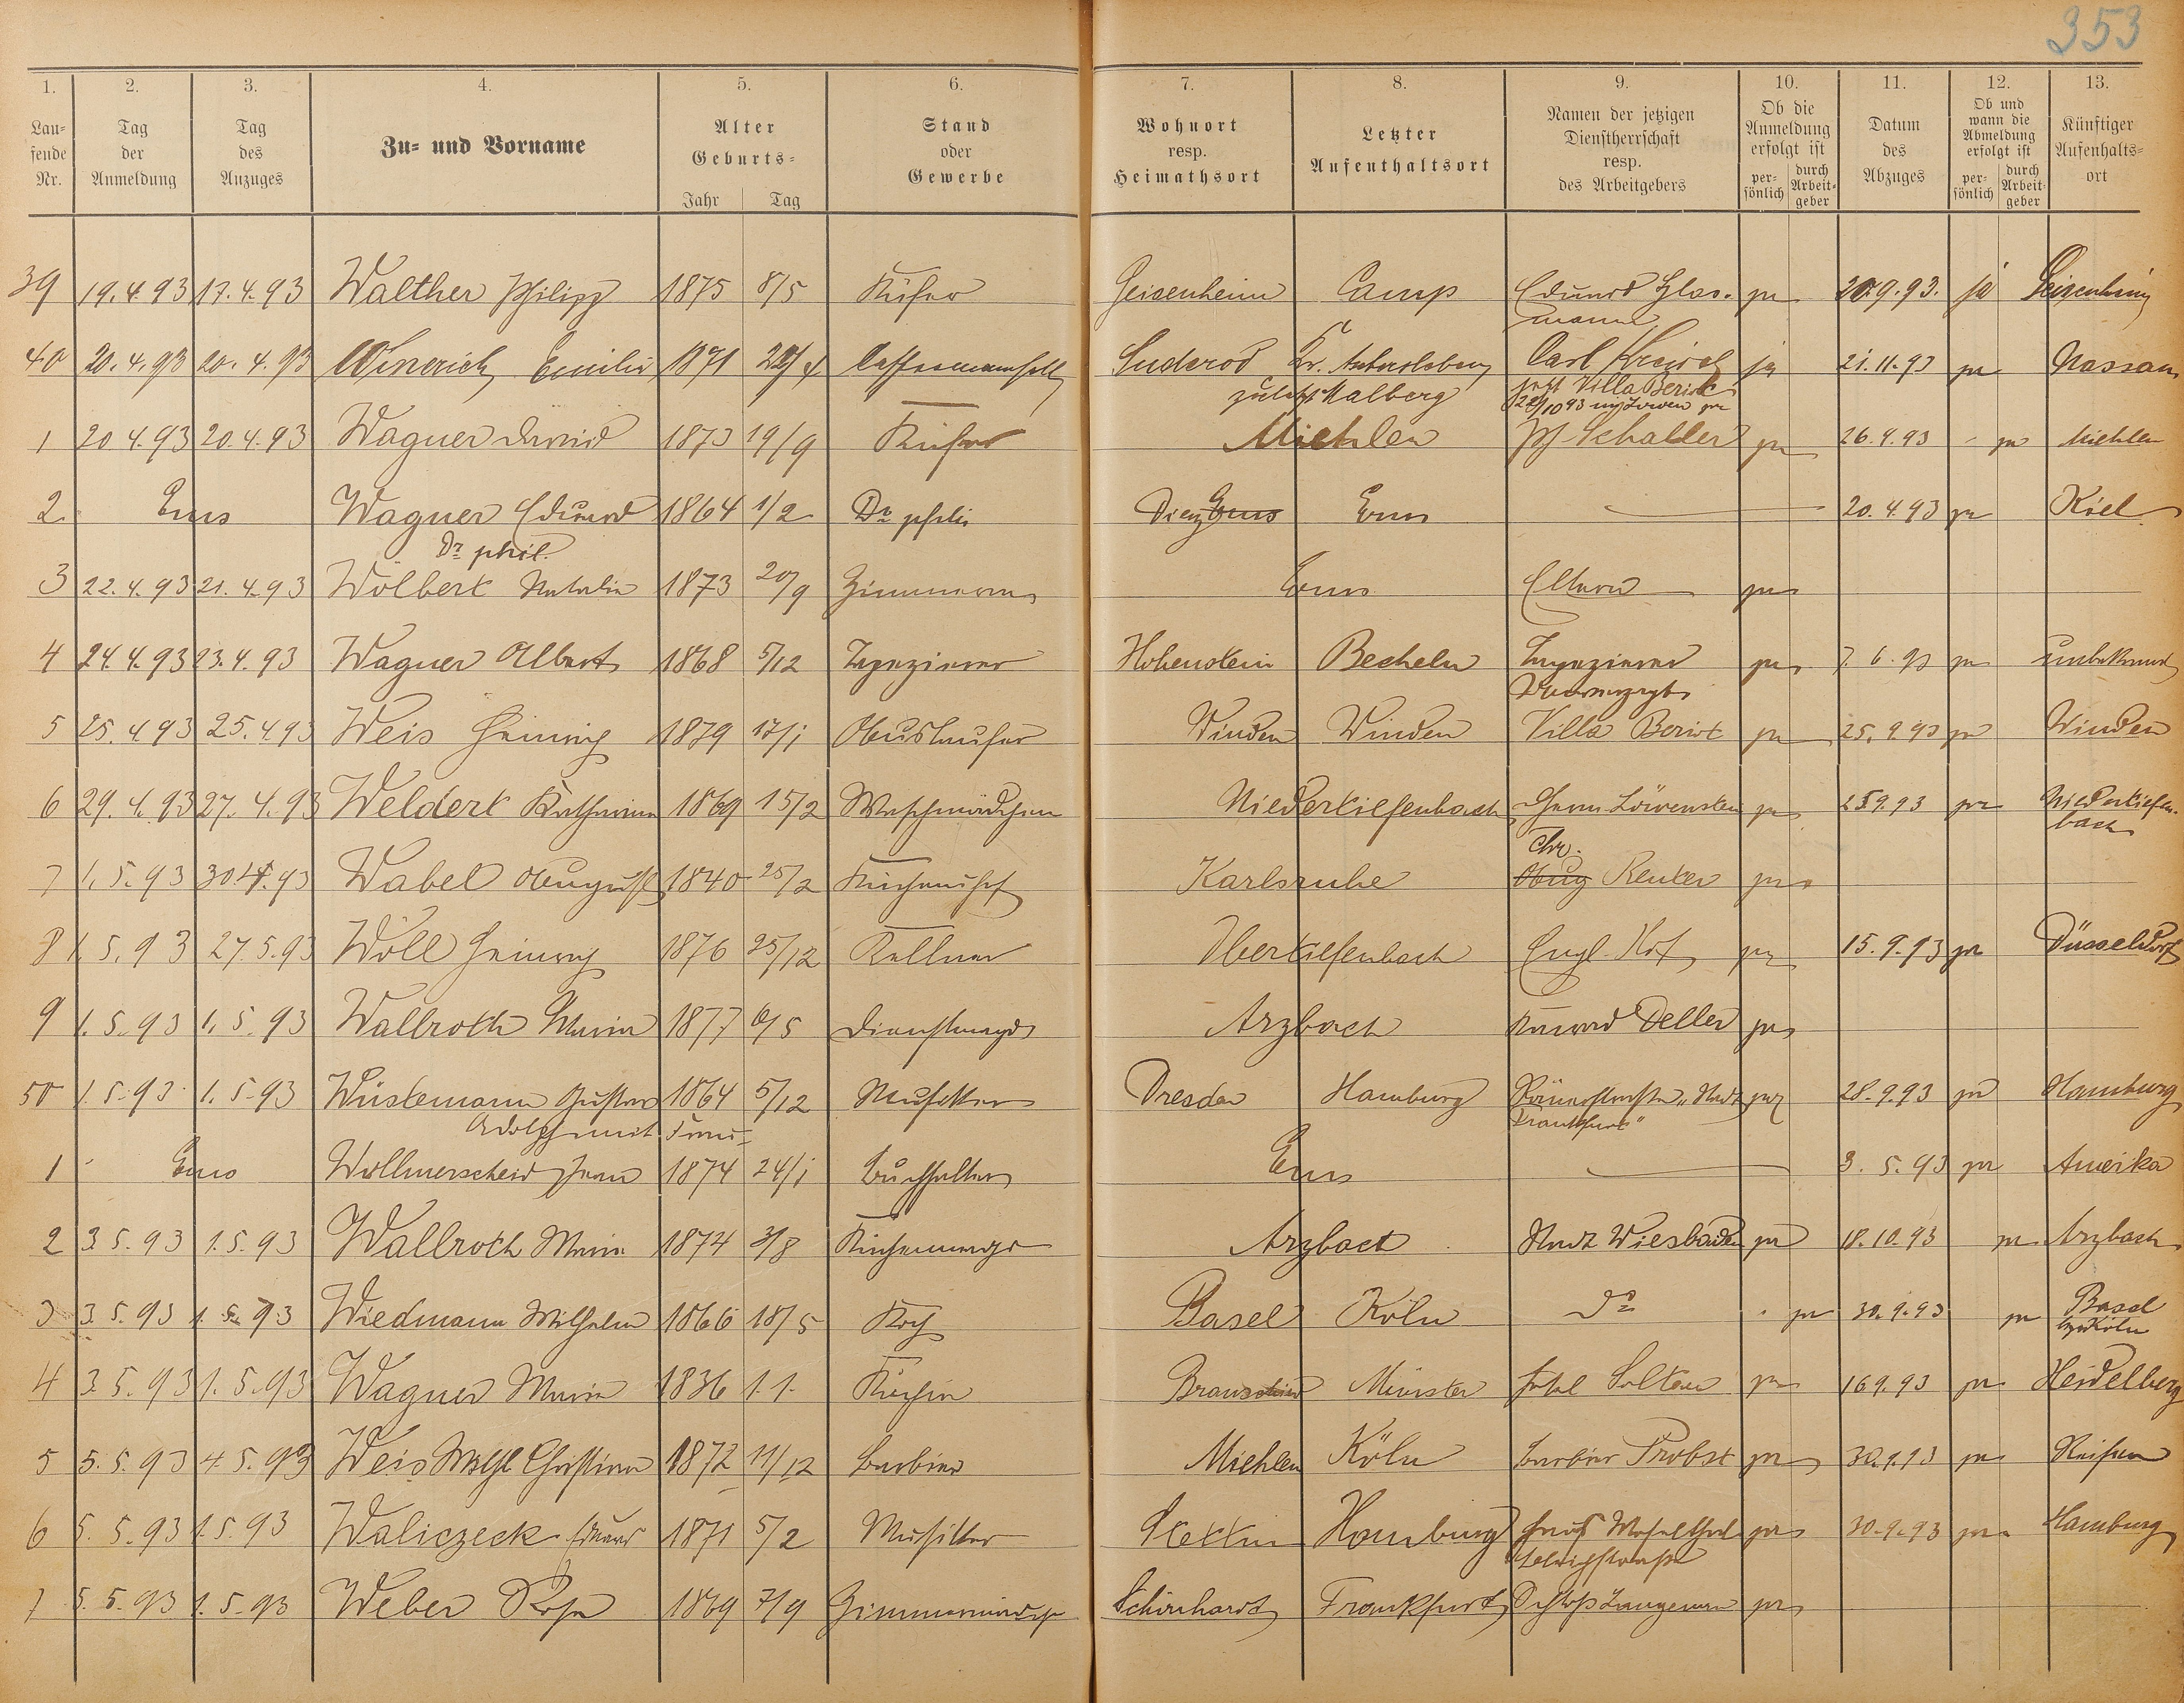 353
1. 2. 3. 4. 5. 6. 7. 8. 9. 10. 11. 12. 13.
Lau-
fende
Nr.
Tag
der
Anmeldung
Tag
des
Anzuges
Zu- und Vorname
Alter
Geburts-
Jahr Tag
Stand
oder
Gewerbe
Wohnort
resp.
Heimathsort
Letzter
Aufenthaltsort
Namen der jetzigen
Dienstherrschaft
resp.
des Arbeitgebers
Ob die
Anmeldung
erfolgt ist
per-
sönlich
durch
Arbeit-
geber
Datum
des
Abzuges
Ob und
wann die
Abmeldung
erfolgt ist
per-
sönlich
durch
Arbeit-
geber
Künftiger
Aufenthalts-
ort
39 19.4.93 17.4.93 Walther Philipp 1875 8/5 Küfer Geisenheim Camp Eduard Glas- ja 20.9.93. ja Geisenheim
mann
40 20.4.93 20.4.93 Emilie 1871 Suderod Kr. Carl ja 21.11.93 ja Nassau
zuletzt Malberg jetzt Villa Beriot
1 20 4.93 20.4.93 Wagner David 1873 19/9 Küfer Miehlen Ph. Schaller ja 26.4.93 - ja Miehlen
2 Ems Wagner Eduard 1864 1/2 Dr phil Diez Ems Ems — 20.4.93 ja Kiel
Dr phil.
3 22.4.93 21.4.93 Wölbert Natalie 1873 20/9 Ems Eltern ja
4 24.4.93 23.4.93 Wagner Albert 1868 5/12 Tapezierer Hohenstein Becheln Tapezierer ja 7.6.93 ja unbekannt
5 25.4 93 25.4.93 Weis Heinrich 1879 17/1 Auslaufer Winden Winden Villa Beriot ja 25.9.93 ja Winden
6 29.4.93 27.4.93 Weldert Katharina 1869 15/2 Waschmädchen Niedertiefenbach Löwenstein ja 25 9.93 ja Niedertiefen-
bach
Chr.
7 1.5.93 30.4.93 Wabel August 1840 25/2 Küchenchef Karlsruhe Aug Reuter ja
8 1.5.93 27.5.93 Woll Heinrich 1876 25/12 Kellner Obertiefenbach Engl. Hof ja 15.9.93 ja Düsseldorf
9 1.5.93 1.5.93 Wallroth Maria 1877 6/5 Dienstmagd Arzbach Deller ja
50 1.5.93 1.5.93 Wüstemann Gustav 1864 5/12 Musiker Dresden Hamburg Römerstraße „Stadt ja 28.9.93 ja Hamburg
Adolph mit Frau Frankfurt"
1 Ems Wollmerscheid Jean 1874 24/1 Buchhalter Ems — 3.5.93 ja Amerika
2 3.5.93 1.5.93 Wallroth Maria 1874 3/8 Küchenmagd Arzbach Stadt Wiesbaden ja 18.10.93 ja Arzbach
3 3.5.93 1.5.93 Wiedmann Wilhelm 1866 18/5 Koch Basel Köln Do ja 30.9.93 ja Basel
Köln
4 3.5.93 1.5.93 Wagner Maria 1836 1.1. Köchin Münster Hotel ja 16 9.93 ja Heidelberg
5 5.5.93 4.5.93 Weis Wilh Christian 1872 11/12 Barbier Miehlen Köln Barbier Probst ja 30.9.93 ja
6 5.5.93 1.5.93 Waliczeck Eduard 1871 5/2 Musiker Stettin Hamburg Haus ja 30.9.93 ja Hamburg
7 5.5.93 1.5.93 Weber Rosa 1869 7/9 Zimmermädch Frankfurt Schloß Langenau ja